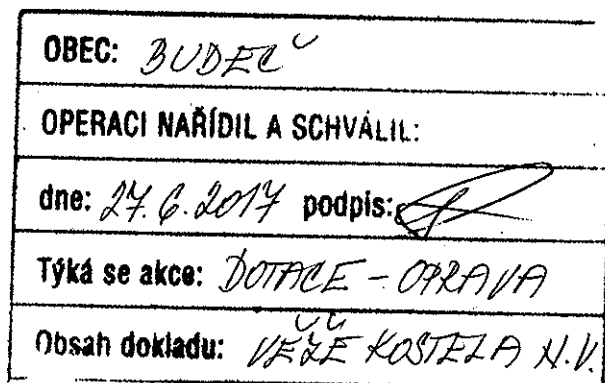 OBEC: BUDEČ
OPERACI NAŘÍDIL A SCHVÁLIL:
dne: 27. 6. 2017 podpis:
Týká se akce: DOTACE - OPRAVA
Obsah dokladu: VĚŽE KOSTELA N.V.